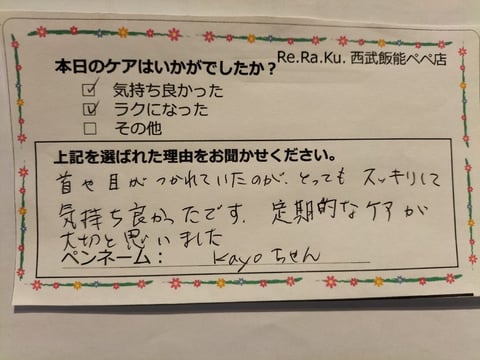 Re.Ra.Ku. 西武飯能ペペ店
本日のケアはいかがでしたか？
☑ 気持ち良かった
☑ ラクになった
□ その他
上記を選ばれた理由をお聞かせください。
首や目がつかれていたのが、とっても スッキリして
気持ち良かったです。定期的なケアが
大切と思いました
ペンネーム： Kayoちゃん